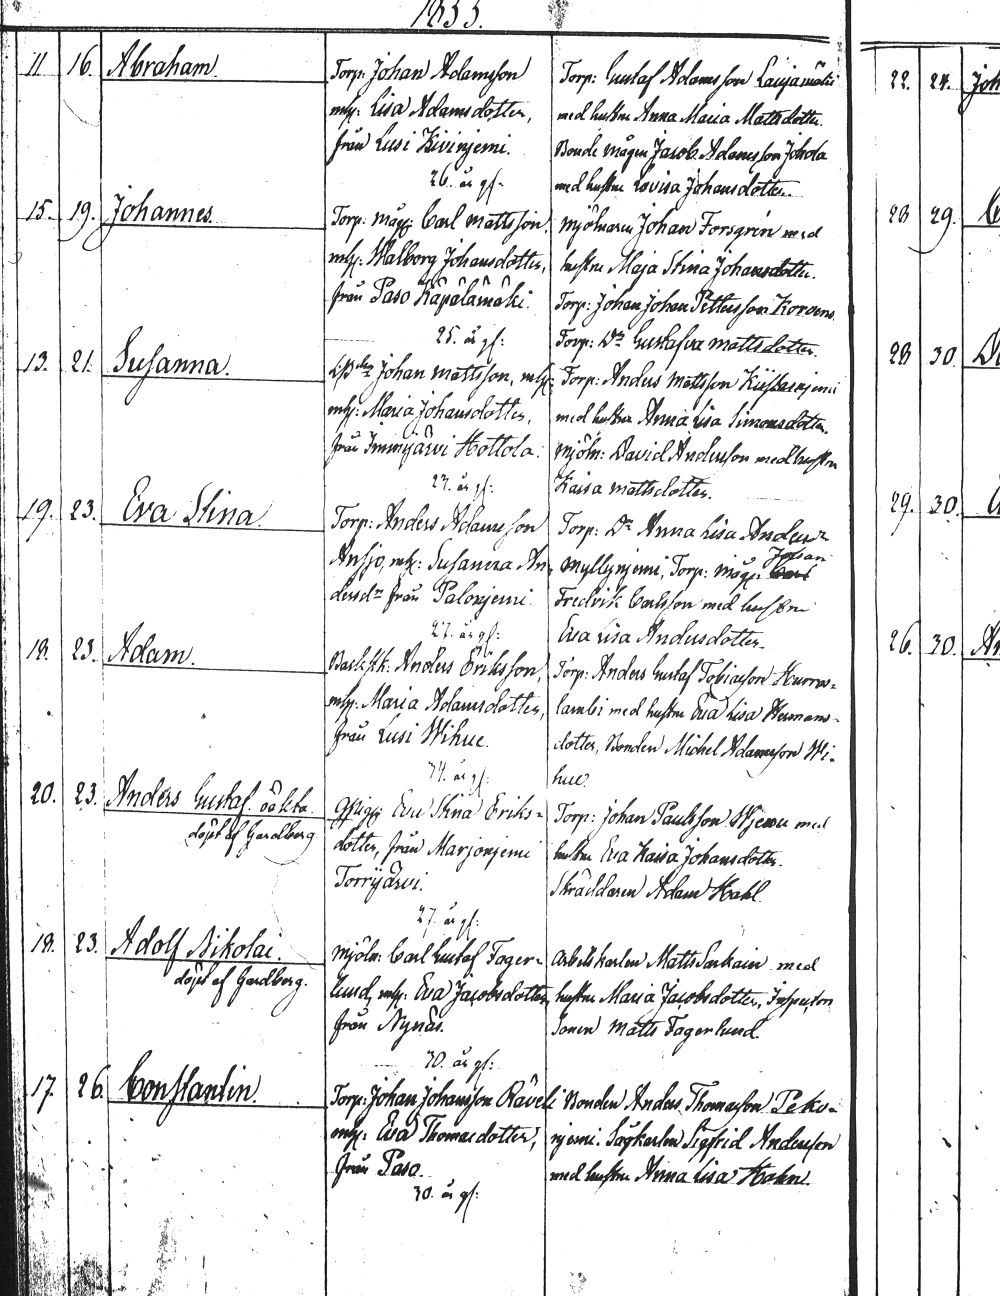 1853.
11 16. Abraham.
Torp: Johan Adamsson
mk: Lisa Adamsdotter,
från Lusi Kivinjemi.
26. år gl:
Torp: Gustaf Adamsson
med hustru Anna Maria Mattsdotter.
Bonde mågen Jacob Adamsson
med hustru Lovisa Johansdotter.
15. 19. Johannes.
Torp: måg: Carl Mattsson,
mk: Walborg Johansdotter,
från Paso
25. år gl:
Mjölnaren Johan Forsgrén med
hustru Maja Stina Johansdotter.
Torp: Johan Johan Pettersson
Torp: Dr Gustafva Mattsdotter.
13. 21. Susanna.
Johan Mattsson,
mk: Maria Johansdotter,
från Immijärvi Hollola.
27. år gl:
Torp: Anders Mattsson
med hustru Anna Lisa Simonsdotter.
Mjöln: David Andersson med hustru
Kaisa Mattsdotter.
19. 23. Eva Stina.
Torp: Anders Adamsson
Ansjo, mk: Susanna An-
dersdr från Palonjemi.
27. år gl:
Torp: Dr Anna Lisa Andersdr
Myllynjemi, Torp: måg: Johan
Fredrik Carlsson med hustru
Eva Lisa Andersdotter.
18. 23. Adam.
Anders Eriksson,
mk: Maria Adamsdotter,
från Lusi Wihue.
34. år gl:
Torp: Anders Gustaf Tobiasson Hurros-
lambi med hustru Eva Lisa Hermans-
dotter, Bonden Michel Adamsson Wi-
hue.
20. 23. Anders Gustaf. oäkta.
döpt af Gardberg.
Eva Stina Eriks-
dotter, från Marjonjemi
Torrijärvi.
27. år gl:
Torp: Johan Paulsson med
hustru Eva Kaisa Johansdotter.
Skräddaren Adam Hahl.
18. 23. Adolf Nikolai.
döpt af Gardberg.
Mjöln: Carl Gustaf Fager-
lund, mk: Eva Jacobsdotter,
från Nynäs.
30. år gl:
Arbetskarlen Matts Sarkain med
hustru Maria Jacobsdotter, Inspector
Sonen Matts Fagerlund.
17. 26. Constantin.
Torp: Johan Johansson Räveli
mk: Eva Thomasdotter,
från Paso.
30. år gl:
Bonden Anders Thomasson Peko-
njemi. Sågkarlen Sigfrid Andersson
med hustru Anna Lisa Hahn.
22. 24. Joh
28 29.
28 30.
29. 30.
26. 30. An